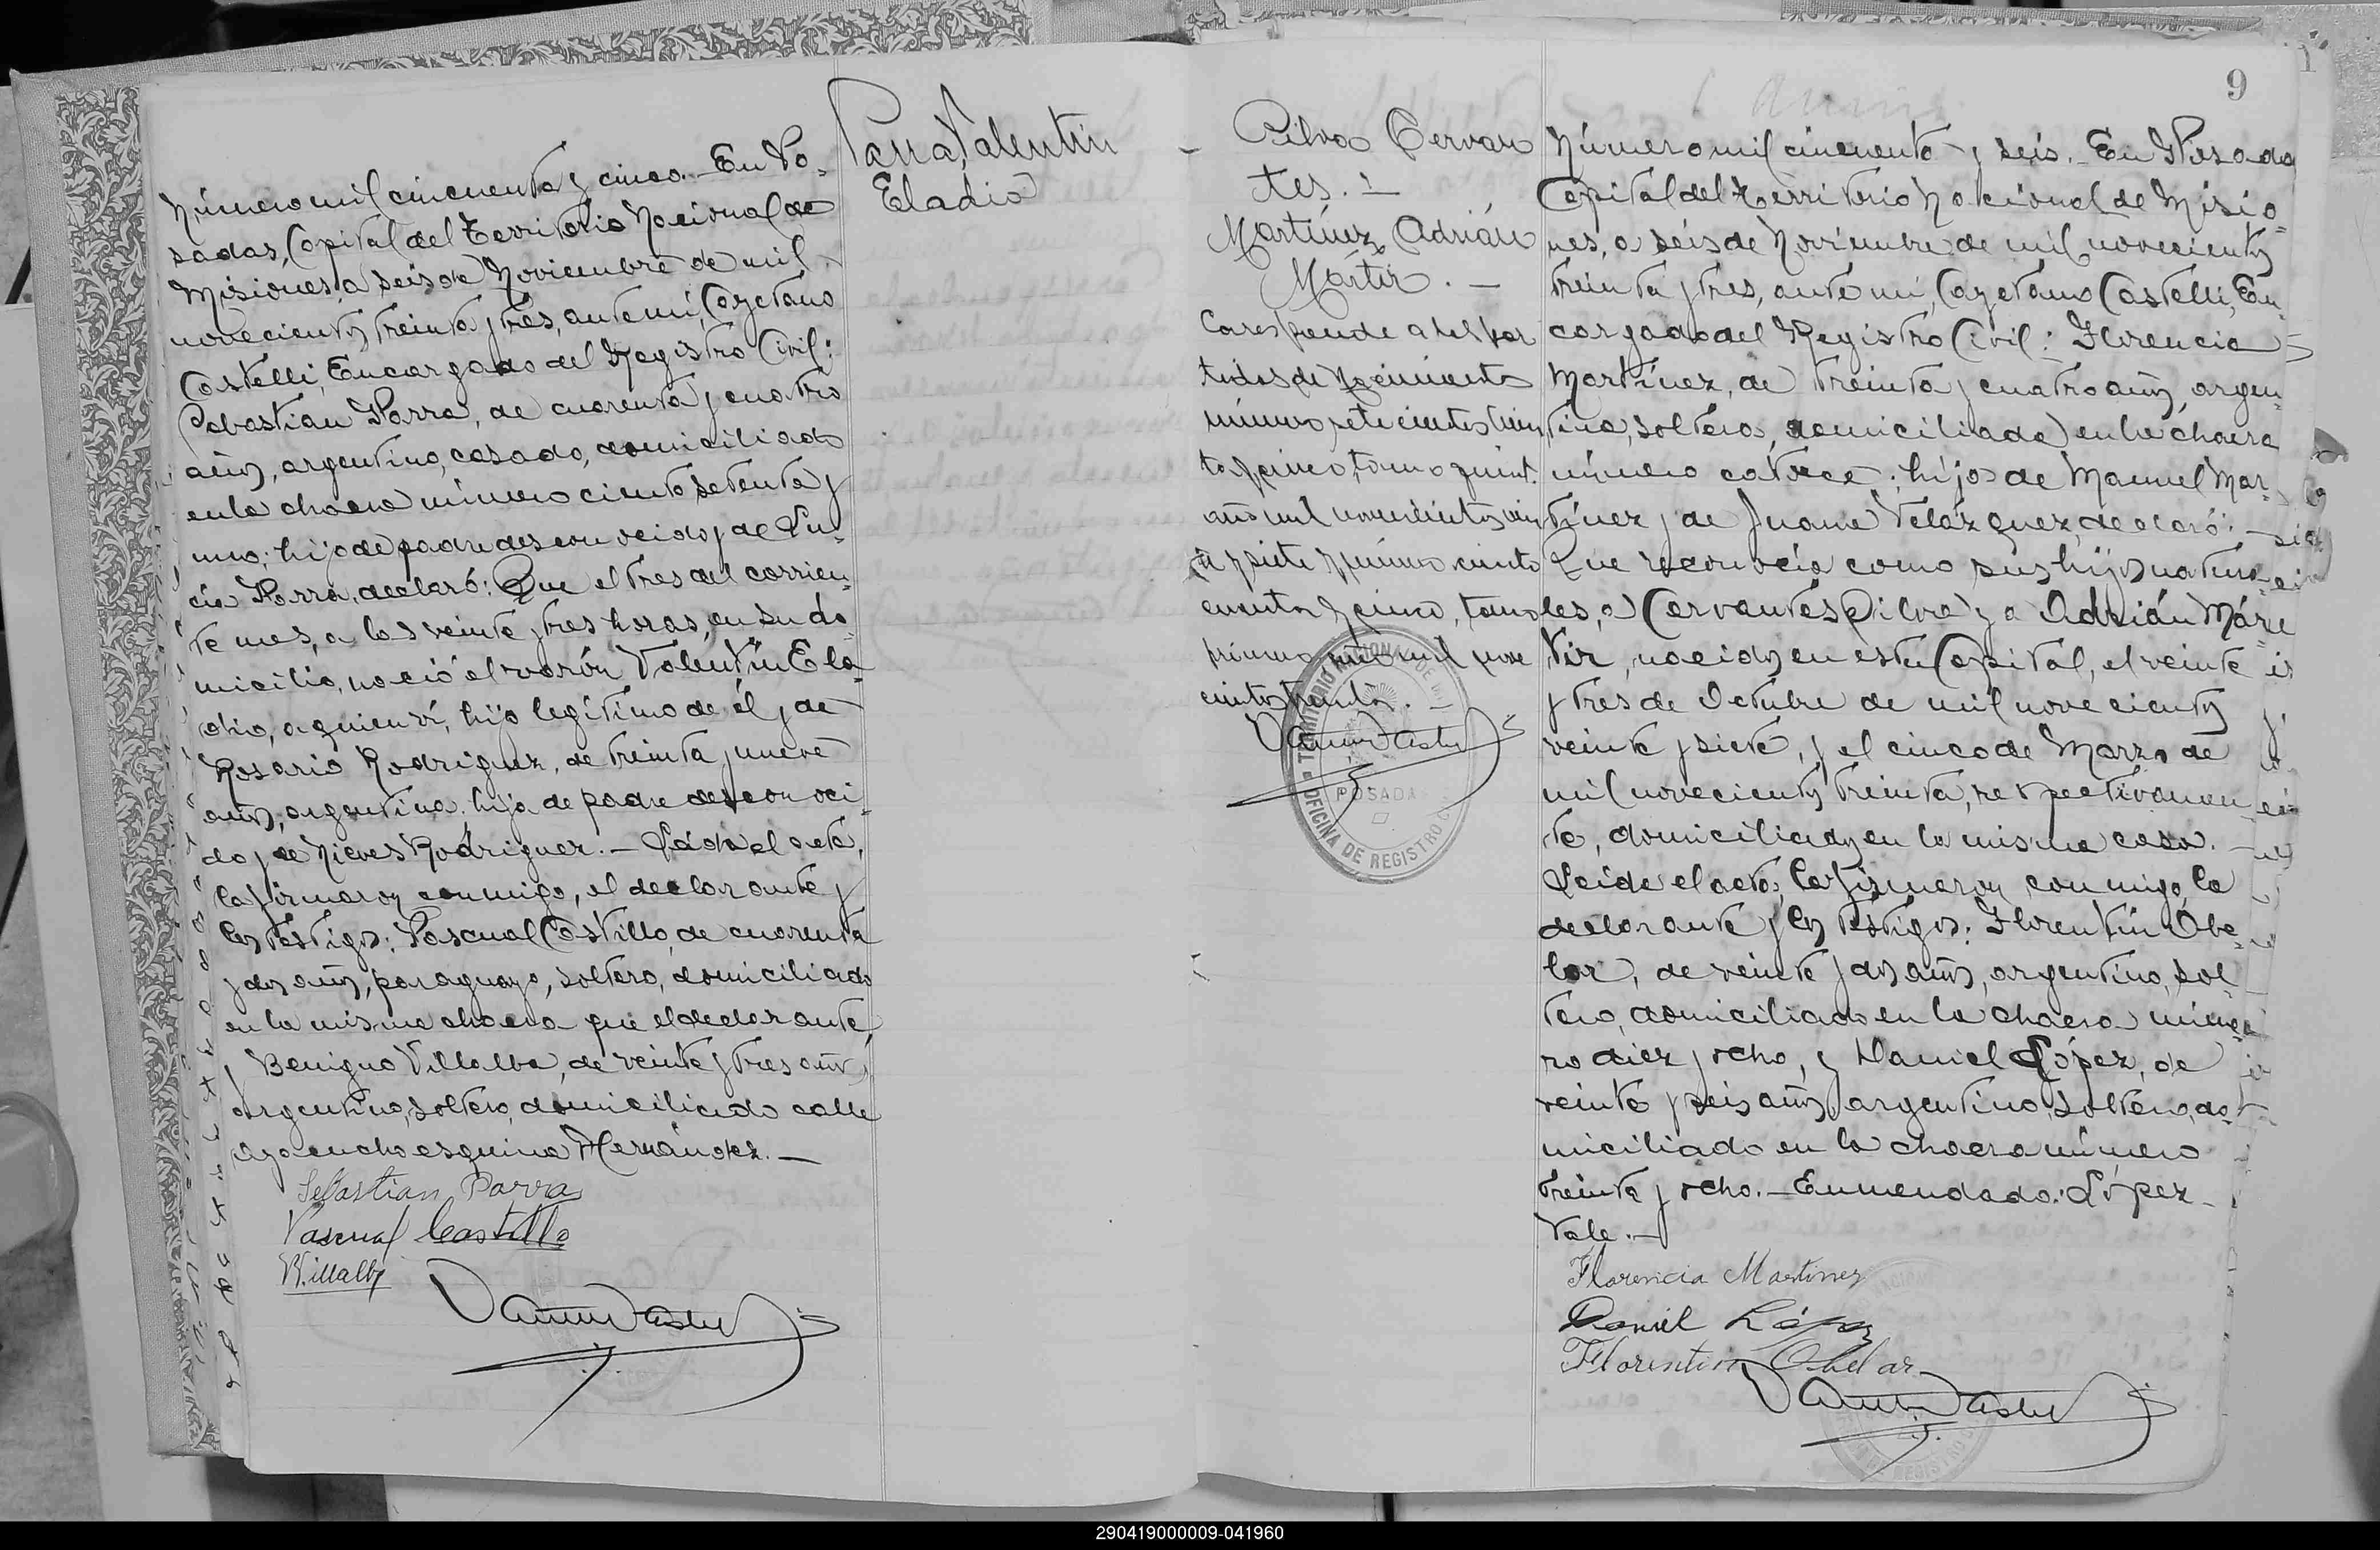 Número mil cincuenta y cinco.- En Po-
sadas, Capital del Territorio Nacional de
Misiones, a seis de Noviembre de mil
novecientos treinta y tres, ante mí, Cayetano
Castelli, Encargado del Registro Civil:
Sebastian Parra, de cuarenta y cuatro
años, argentino, casado, domiciliado
en la chacra número ciento setenta y
uno; hijo de padre desconocido y de Lu-
cia Parra, declaró: Que el tres del corrien-
te mes, a las veinte y tres horas, en su do-
micilio, nació el varón Valentín Ela-
dio, a quien ví, hijo legítimo de él y de
Rosario Rodriguez, de treinta y nueve
años, argentina, hija de padre desconoci-
do y de Nieves Rodriguez.- Leída el acta,
la firmaron conmigo, el declarante y
los testigos: Pascual Castillo, de cuarenta
y dos años, paraguayo, soltero, domiciliado
en la misma chacra que el declarante,
y Benigno Villalba, de veinte y tres años,
argentino, soltero, domiciliado calle
Ayacucho esquina Hernández.-
Sebastian Parra
Pascual Castillo
B. Villalb
Parra, Valentín
Eladio
Silva Cervan
tes.-
Martínez, Adrián
Mártir.-
Corresponde a las par
tidas de Nacimiento
número setecientos
y cinco, tomo quint.
año mil novecientos vein
te y siete y número ciento
cuenta y cinco, tomo
primero año mil nove
cientos treinta.-
TERRITORIO NACIONAL DE MI
POSADAS
OFICINA DE REGISTRO C
9
Número mil cincuenta y seis.- En Posadas
Capital del Territorio Nacional de Misio-
nes, a seis de Noviembre de mil novecientos
treinta y tres, ante mí, Cayetano Castelli, En-
cargado del Registro Civil: Florencia
Martínez, de treinta y cuatro años, argen-
tina, soltera, domiciliada en la chacra
número catorce; hija de Manuel Mar-
tínez y de Juana Velázquez, declaró:-
Que reconocía como sus hijos natura-
les, a Cervantes Silva y a Adrián Már-
tir, nacidos en esta Capital, el veinte
y tres de Octubre de mil novecientos
veinte y siete, y el cinco de Marzo de
mil novecientos treinta, respectivamen-
te, domiciliados en la misma casa.-
Leída el acta, la firmaron conmigo, la
declarante y los testigos: Florentín Obe-
lar, de veinte y dos años, argentino, sol-
tero, domiciliado en la chacra núme-
ro diez y ocho, y Daniel López, de
veinte y seis años, argentino, soltero, do-
miciliado en la chacra número
treinta y ocho.- Enmendado: López-
Vale.-
Florencia Martinez
Daniel López
Florentin Obelar
290419000009-041960